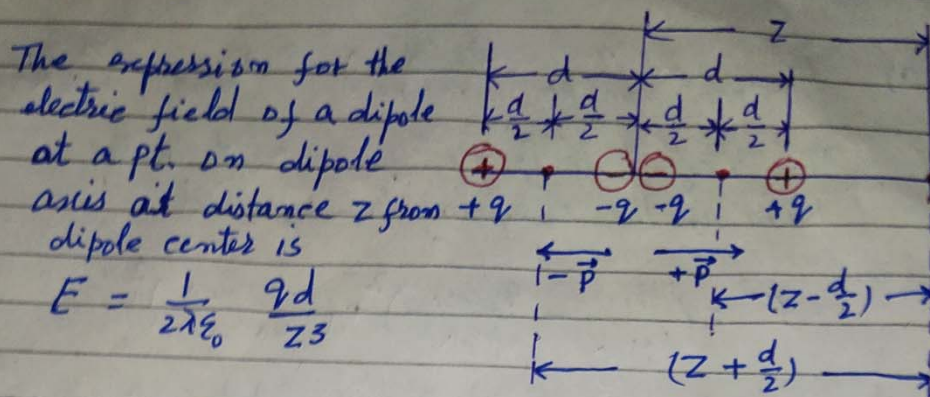 The expression for the
electric field of a dipole
at a pt. on dipole
axis at distance z from
dipole center is
E = 1/2πε₀ qd/z3
z
d d
d/2 d/2 d/2 d/2
+ − − +
+q -q -q +q
-p⃗ +p⃗
(z - d/2)
(z + d/2)